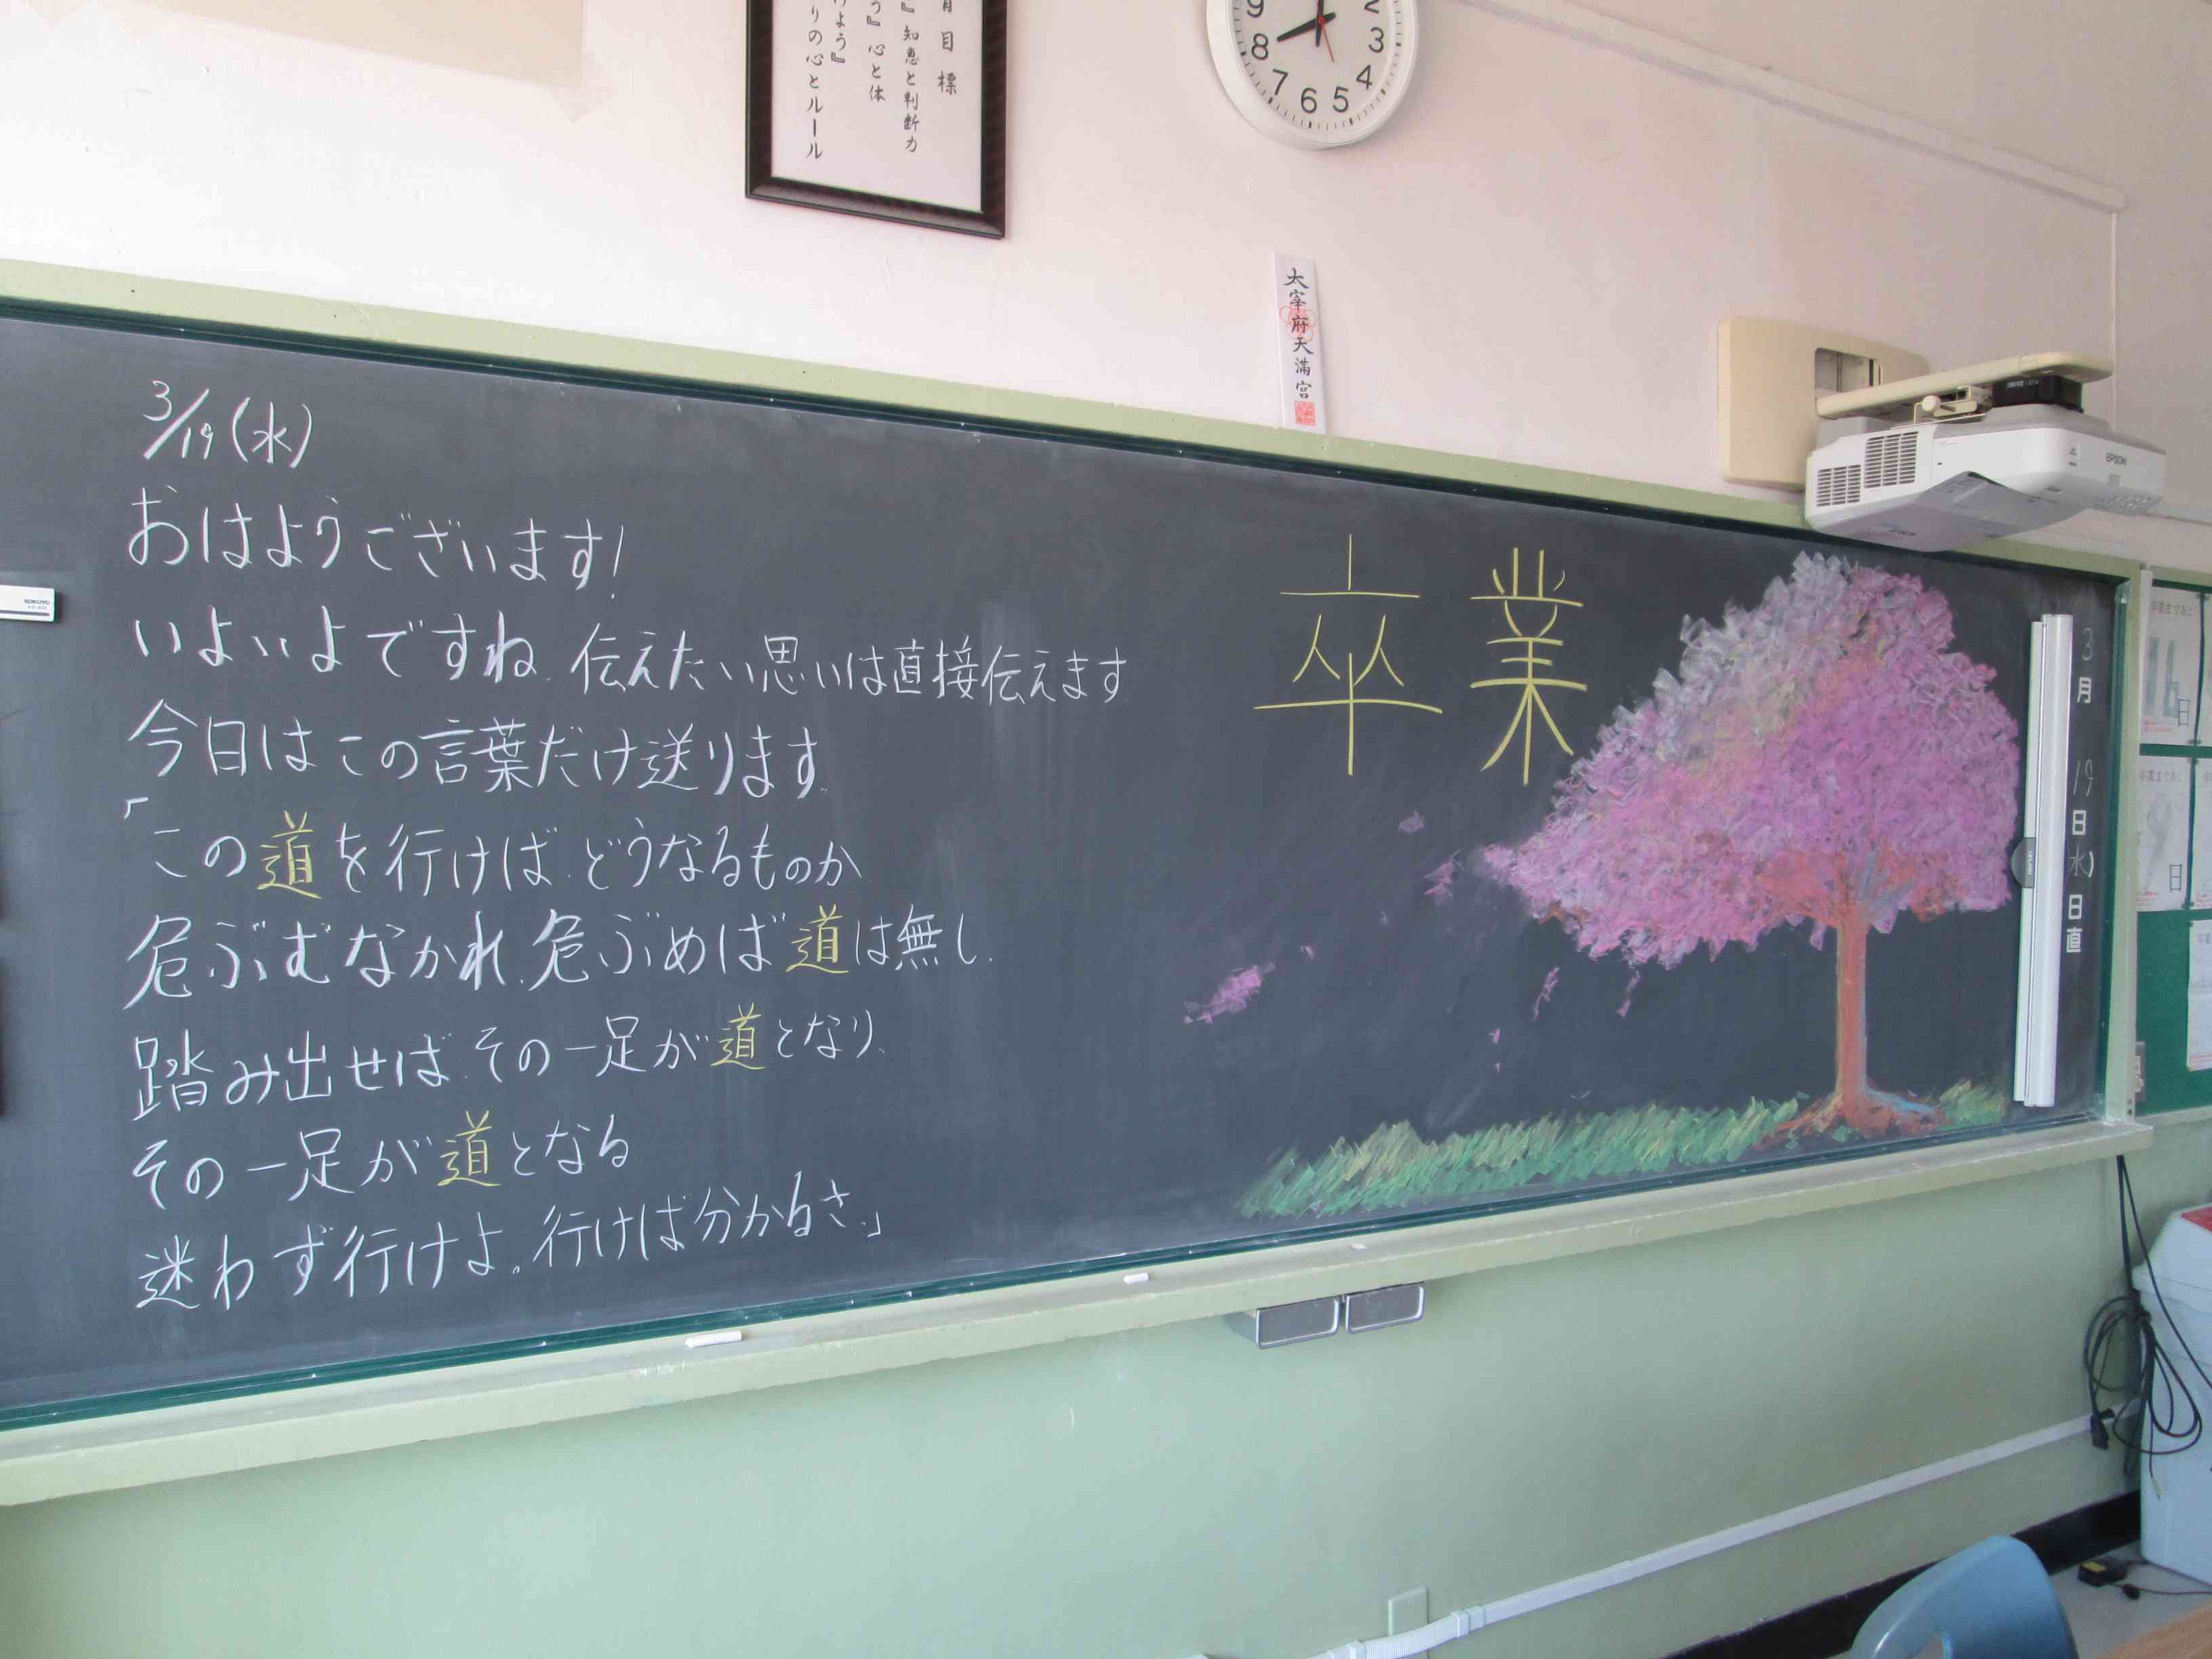 目標
知恵と判断力
心と体
りの心とルール
9
8
7
6
5
4
3
2
太宰府天満宮
EPSON
3/19(水)
おはようございます!
いよいよですね. 伝えたい思いは直接伝えます.
今日はこの言葉だけ送ります.
「この道を行けば.どうなるものか
危ぶむなかれ.危ぶめば道は無し.
踏み出せば.その一足が道となり、
その一足が道となる
迷わず行けよ。行けば分かるさ.」
卒業
3月 19日(水) 日直
KOKUYO
16日
9日